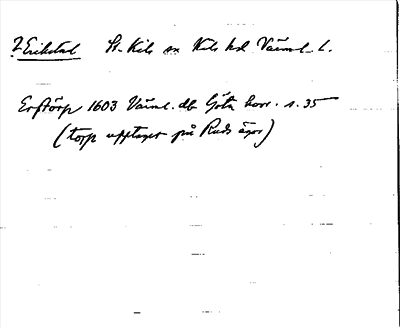 ? Erikstad St. Kils sn Kils hd Värml. l.
Erstorp 1603 Värml. db Göta hovr. s. 35
(torp upptaget på Ruds ägor)